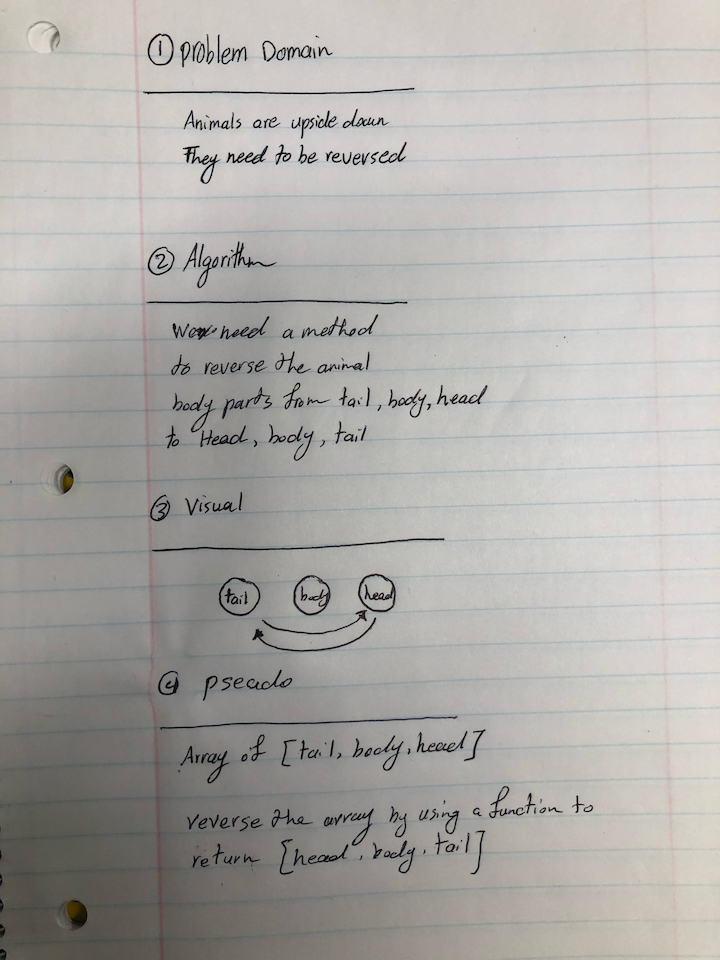 ① Problem Domain
Animals are upside down
They need to be reversed
② Algorithm
We need a method
to reverse the animal
body parts from tail, body, head
to Head, body, tail
③ Visual
tail body head
④ pseado
Array of [tail, body, head]
reverse the array by using a function to
return [head, body, tail]